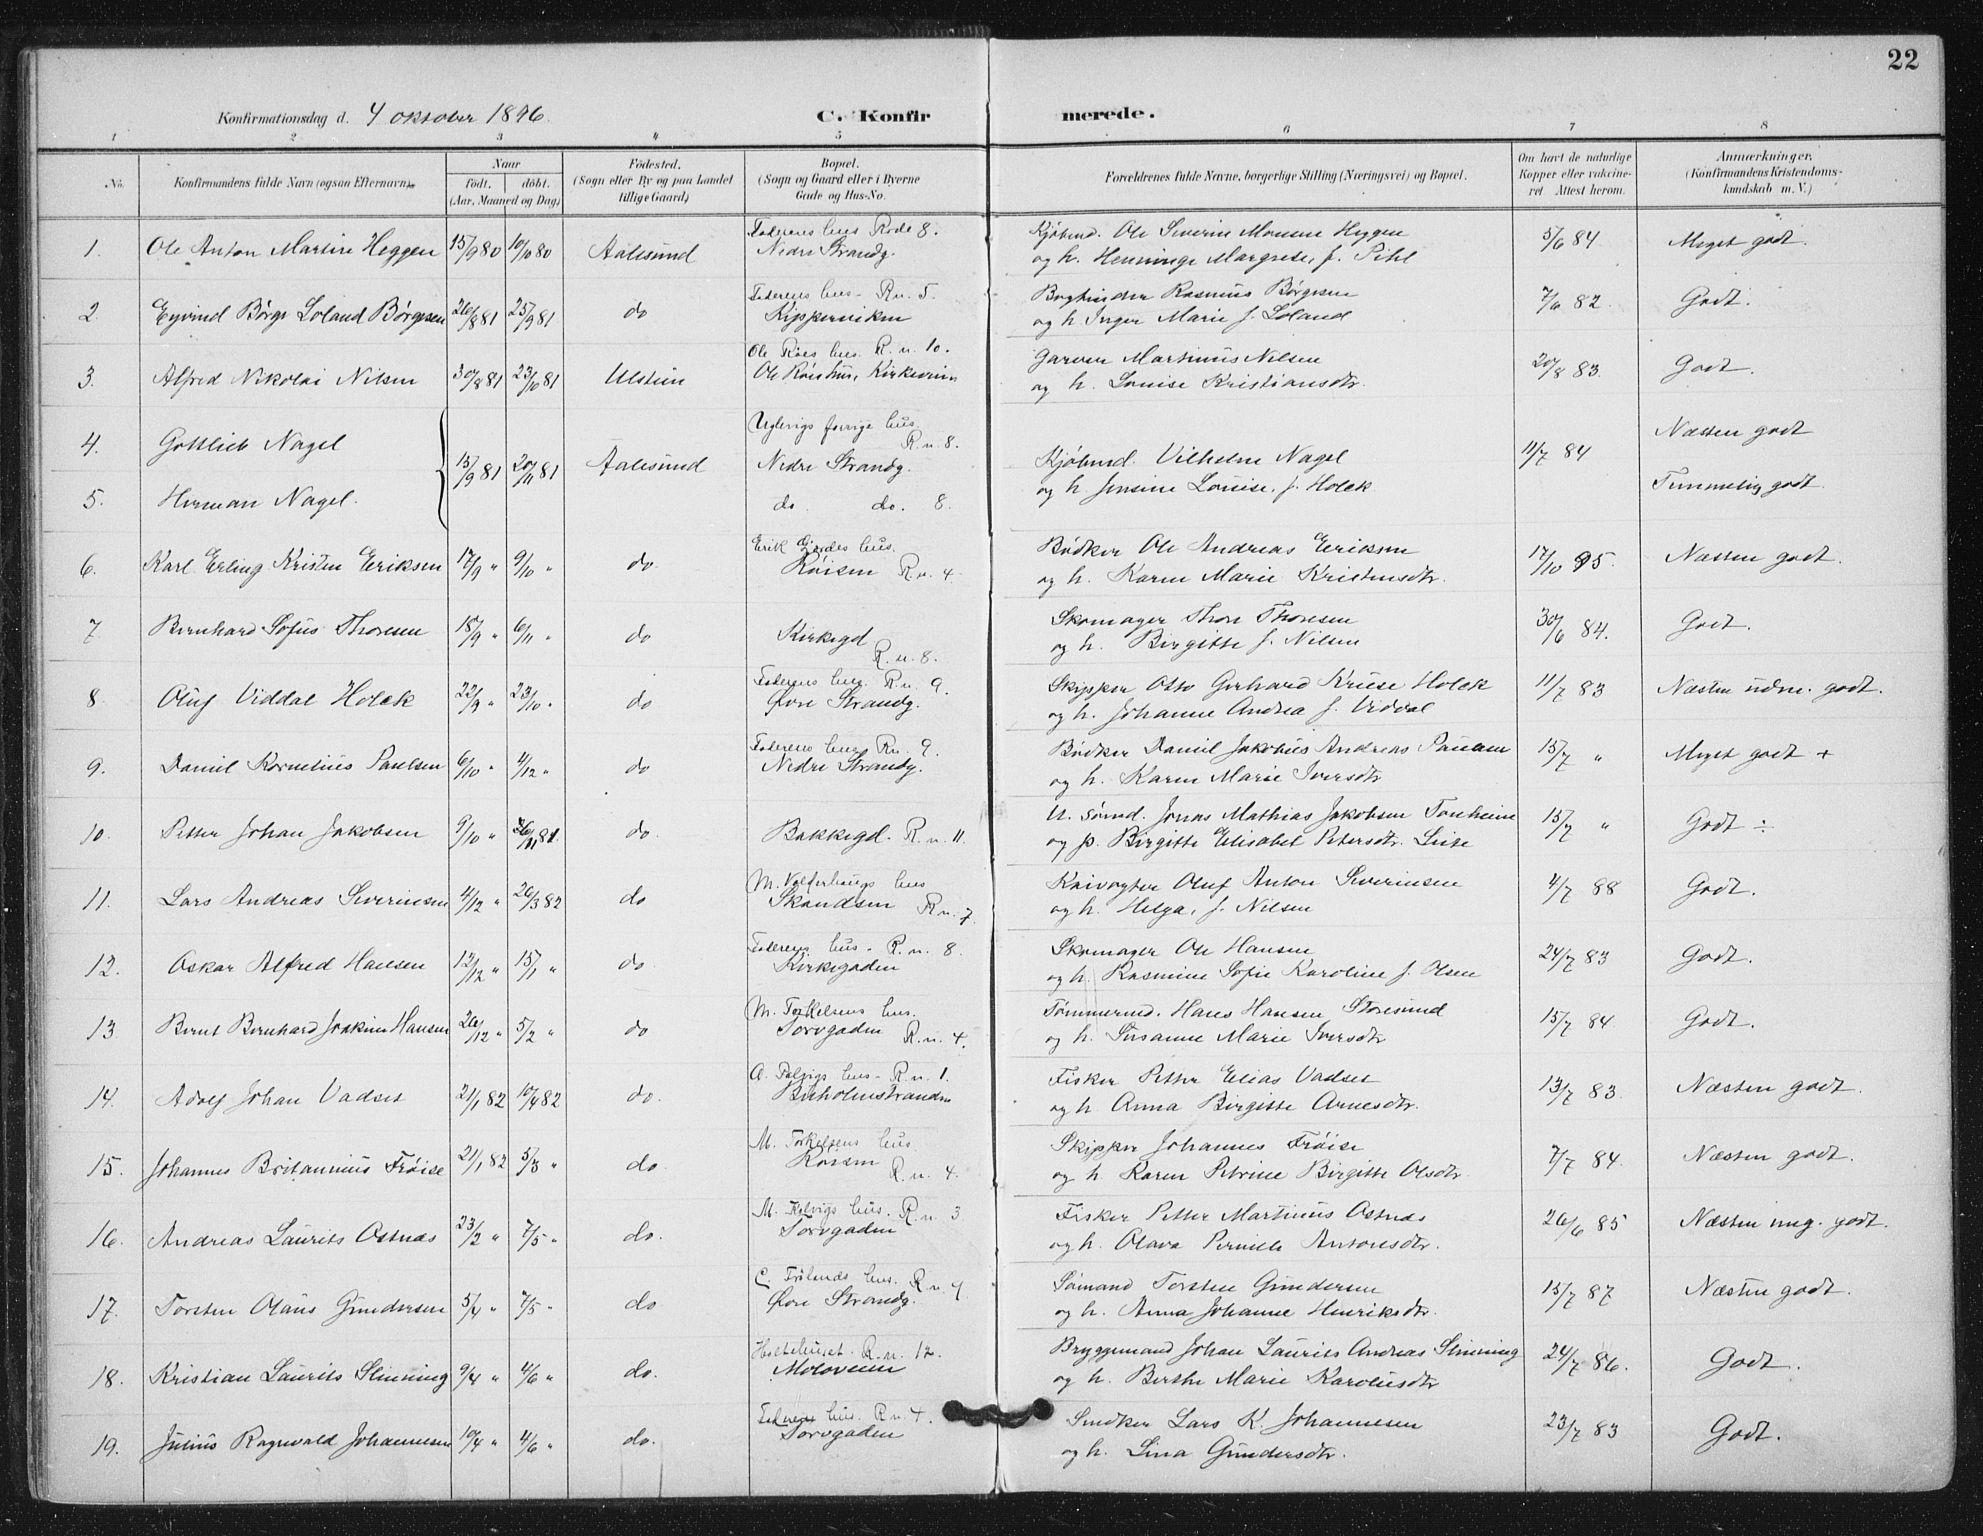 22
Konfirmationsdag d. 4 oktober 1896.
C. Konfirmerede.
1 2 3 4 5 6 7 8
No. Konfirmandens fulde Navn (ogsaa Efternavn). Naar født, døbt, (Aar, Maaned og Dag) Fødested. (Sogn eller By og paa Landet tillige Gaard) Bopæl. (Sogn og Gaard eller i Byerne Gade og Hus-No. Forældrenes fulde Navne, borgerlige Stilling (Næringsvei) og Bopæl. Om havt de naturlige Kopper eller vakcineret Attest herom. Anmærkninger. (Konfirmandens Kristendomskundskab m. V.)
Faderens hus Rode 8. Kjøbmd. Ole Severin Monsen Heggen
1. Ole Anton Martin Heggen 15/9 80 10/10 80 Aalesund Nedre Strandg. og h. Henninge Margrete, f. Pihl 5/6 84 Meget godt.
Faderens hus - R.n. 5. Bogbinder Rasmus Börgesen
2 Eyvind Börge Loland Börgesen 26/8 81 25/9 81 do Kipperviken og h. Inger Marie f. Loland 7/6 82 Godt.
Ole Röes hus. R.n. 10. Garver Martinus Nilsen
3. Alfred Nikolai Nilsen 30/8 81 23/10 81 Ulstein Ole Röes hus, Kirkeveien og h. Louise Kristiansdtr. 20/8 83. Godt.
4. Gottlieb Nagel Uglevigs forrige hus R.n. 8. Næsten godt
15/9 81 20/11 81 Aalesund Nedre Strandg. Kjøbmd. Vilhelm Nagel 11/7 84
5. Herman Nagel. do. do. 8. og h. Jensine Louise, f. Holck Temmelig godt.
Erik Gjerdes hus. Bödker Ole Andreas Eriksen
6. Karl Erling Kristen Eriksen 17/9 " 9/10 " do. Röisen R.n. 4. og h. Karen Marie Kristensdtr. 17/10 95. Næsten godt.
Skomager Thor Thoresen
7 Bernhard Sofus Thoresen 18/9 " 6/11 " do Kirkegd R.n. 8. og h. Birgitte f. Nilsen 30/6 84. Godt.
Faderens hus. R.n. 9. Skipper Otto Gerhard Kruse Holck
8 Oluf Viddal Holck 22/9 " 23/10 " do Övre Strandg. og h. Johanne Andrea f. Viddal 11/7 83 Næsten udm. godt.
Faderens hus R.n. 9. Bödker Daniel Jakobus Andreas Paulsen
9. Daniel Kornelius Paulsen 6/10 " 4/12 " do Nedre Strandg. og h. Karen Marie Iversdtr 15/7 " Meget godt +
U. Sømd. Jonas Mathias Jakobsen Tonheim
10. Petter Johan Jakobsen 9/10 " 81. do. Bakkegd. R.n. 11. og p. Birgitte Elisabet Petersdtr. 15/7 " Godt ÷
M. Volferhaugs hus Kaivogter Oluf Anton Severinsen
11. Lars Andreas Severinsen 4/12 " 26/3 82 do Skandsen R.n. 7 og h. Helga, f. Nilsen 4/7 88 Godt.
Faderens hus - R.n. 8. Skomager Ole Hansen
12. Oskar Alfred Hansen 12/12 " 15/1 " do. Kirkegaden og h. Rasmine Sofie Karoline f. Olsen 24/7 83 Godt.
M. Torkelsens hus. Tømmermd. Hans Hansen Storesund
13 Bernt Bernhard Joakim Hansen 26/12 " 5/2 " do Torvgaden R.n. 4. og h. Susanne Marie Iversdtr 15/7 84 Godt.
A. Talvigs hus - R.n. 1. Fisker Petter Elias Vadset
14. Adolf Johan Vadset 21/1 82 10/4 82 do. Buholmstranden og h Anna Birgitte Arnesdtr. 13/7 83. Næsten godt.
M. Torkelsens hus Skipper Johannes Fröise
15. Johannes Britannius Fröise 21/1 82 5/3 " do Röisen R.n. 4. og h Karen Petrine Birgitte Olsdtr. 7/7 84. Næsten godt.
M. Kalvigs hus. R.n. 3 Fisker Petter Martinus Ostnæs
16. Andreas Laurits Ostnæs 23/2 " 7/5 " do. Torvgaden og h. Olava Pernille Antonsdtr. 26/6 85 Næsten mg. godt.
C. Frölands hus. R.n. 4 Sömand Torsten Gundersen
17. Torsten Olaus Gundersen 5/4 " 7/5 " do Övre Strandg. og h. Anna Johanne Henriksdtr. 15/7 87 Næsten godt.
Holtehuset - R.n. 12. Bryggemand Johan Laurits Andreas Slinning
18. Kristian Laurits Slinning 9/4 " 4/6 " do. Moloveien og h. Berthe Marie Karolusdtr 24/7 86. Godt.
Faderens hus. R.n. 4. Snedker Lars K. Johannesen
19. Julius Ragnvald Johannesen 10/4 " 4/6 " do. Torvgaden og h. Lina Gundersdtr. 23/7 83 Godt.